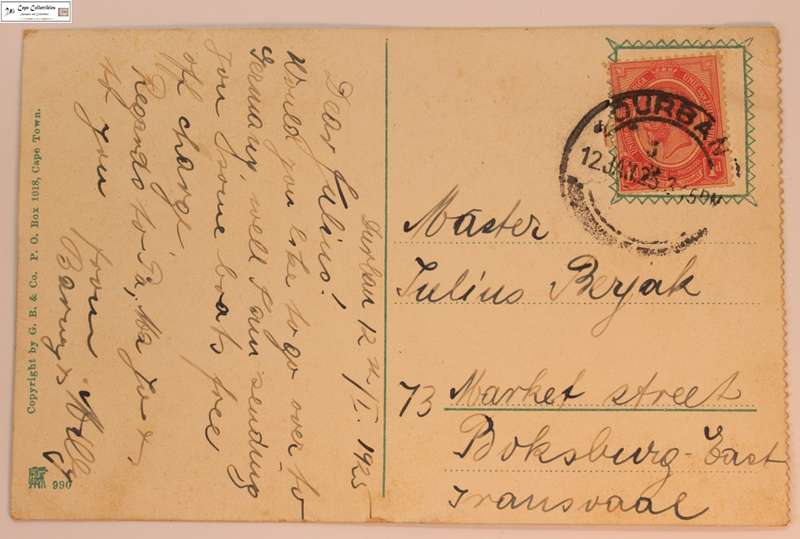 Cape Collectables
Durban 12th /I. 1925
Dear Julius!
Would you like to go over to
Germany, well I am sending
you some boats free
off charge
Regards to Pa, Ma Jos &
to you from
Barney & Willy
Copyright by G. B. & Co. P. O. Box 1018, Cape Town.
990
DURBAN
12 JAN 25
Master
Julius Berjak
73 Market street
Boksburg-East
Transvaal